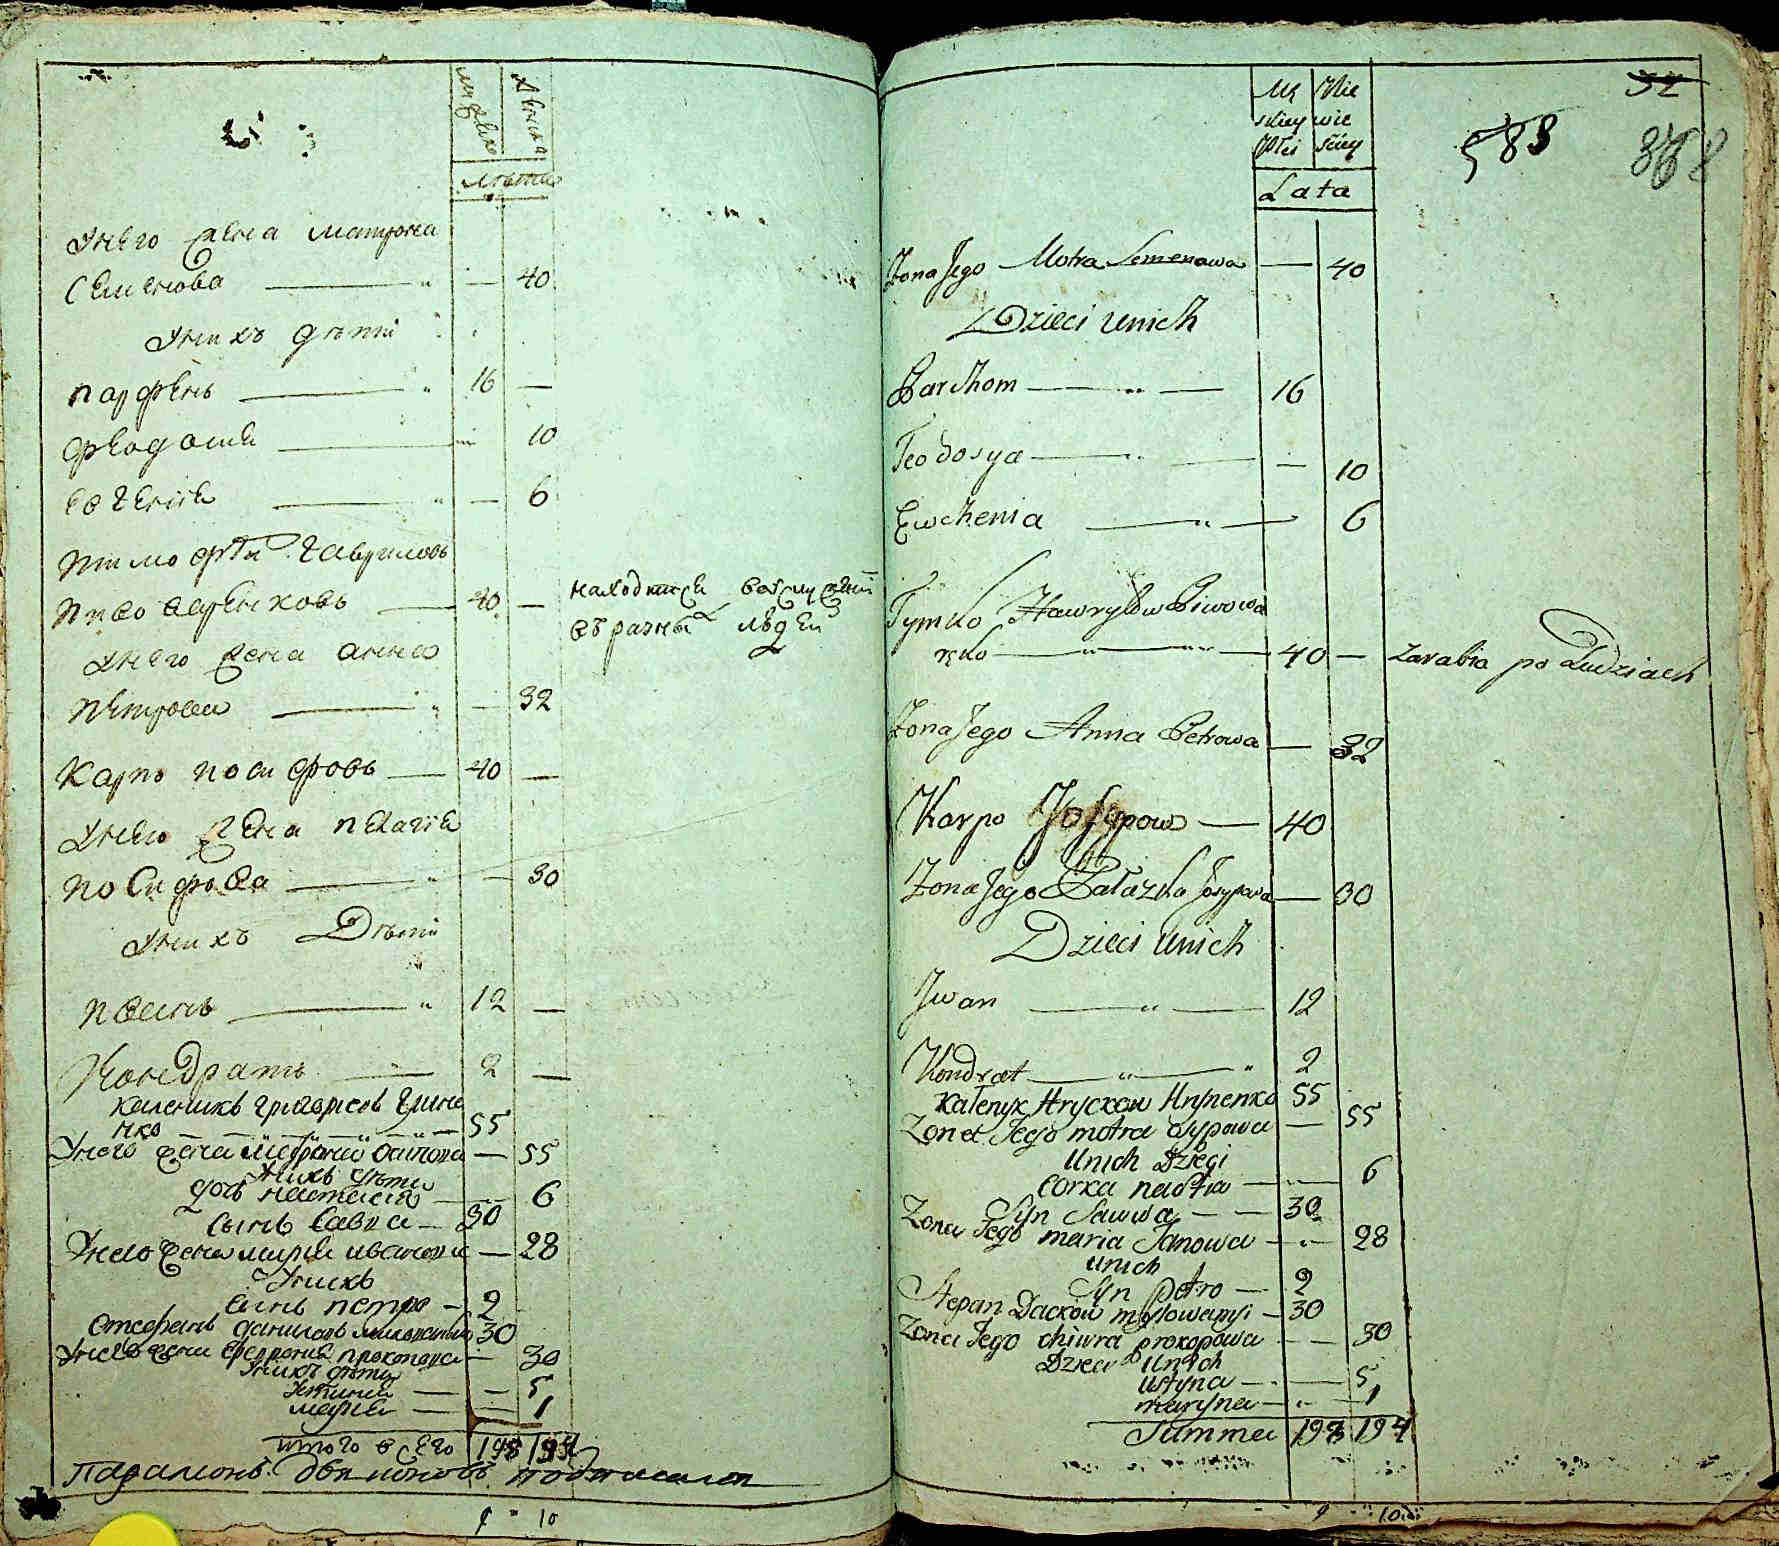 лѣта
Унего жена матрона
Семенова — 40
Унихъ дѣти
парфенъ — 16 —
феодосия — 10
евгения — 6
тимофѣй Гавриловъ
пивоваренковъ — 40 —
находится
въ разныхъ людей
Унего жена анна
петрова — 32
Карпъ иосифовъ — 40 —
Унего жена пелагия
иосифова — 30
Унихъ Дѣти
12 —
Кондратъ — 2 —
каленикъ григориевъ грине
нко — 55
Унего жена матрона осипова — 55
Унихъ дѣти
дочь настасия — 6
сынъ Савва — 30
Унего жена мария иванова — 28
Унихъ
сынъ петро — 2
Стефанъ даниловъ 30
Унего жена прокопова — 30
Унихъ дѣти
устиния — 5
мария — 1
итого всего 198 194
9 10
Mę Nie
skiey wie
Płci sciey
Lata
34
588
368
Zona Jego Motra Semenowa — 40
Dzieci unich
Parchom — 16
Teodosya — 10
Ewchenia — 6
Tymko Hawryłow Piwowa
ręko — 40 — zarabia po Ludziach
Zona Jego Anna Petrowa — 32
Karpo Josypow — 40
Zona Jego Pałazka Josypowa — 30
Dzieci unich
Jwan — 12
Kondrat — 2
Kałenyk Hryckow Hrynenko 55
Zona Jego motra osypowa — 55
Unich Dzieci
Corka nastia — 6
Syn Sawwa — 30
Zona Jego maria Janowa — 28
unich
Syn Petro — 2
Stepan Dackow — 30
Zona Jego chiwra prokopowa — 30
Dzieci Unich
ustyna — 5
marysna — 1
Summa 198 194
9 10